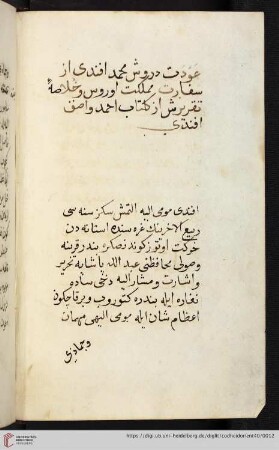 عودت درويش محمد افندى از
سفارت مملكت اوروس وخلاصهٔ
تقريرش از كتاب احمد واصف
افندى
افندى مومى اليه التمش سكز سنه سى
ربيع الاخرينك غره سنده استانه دن
حركت اوتوز كونده نصكره بندر قرينه
وصولى محافظى عبد الله پاشايه تحرير
واشارت ومشار اليه دخى سادو
نغاره ايله بندره كتوروب وبر قاچ كون
اعظام شان ايله مومى اليهى مهمان
وبعده
https://digi.ub.uni-heidelberg.de/diglit/codheidorient407/0012